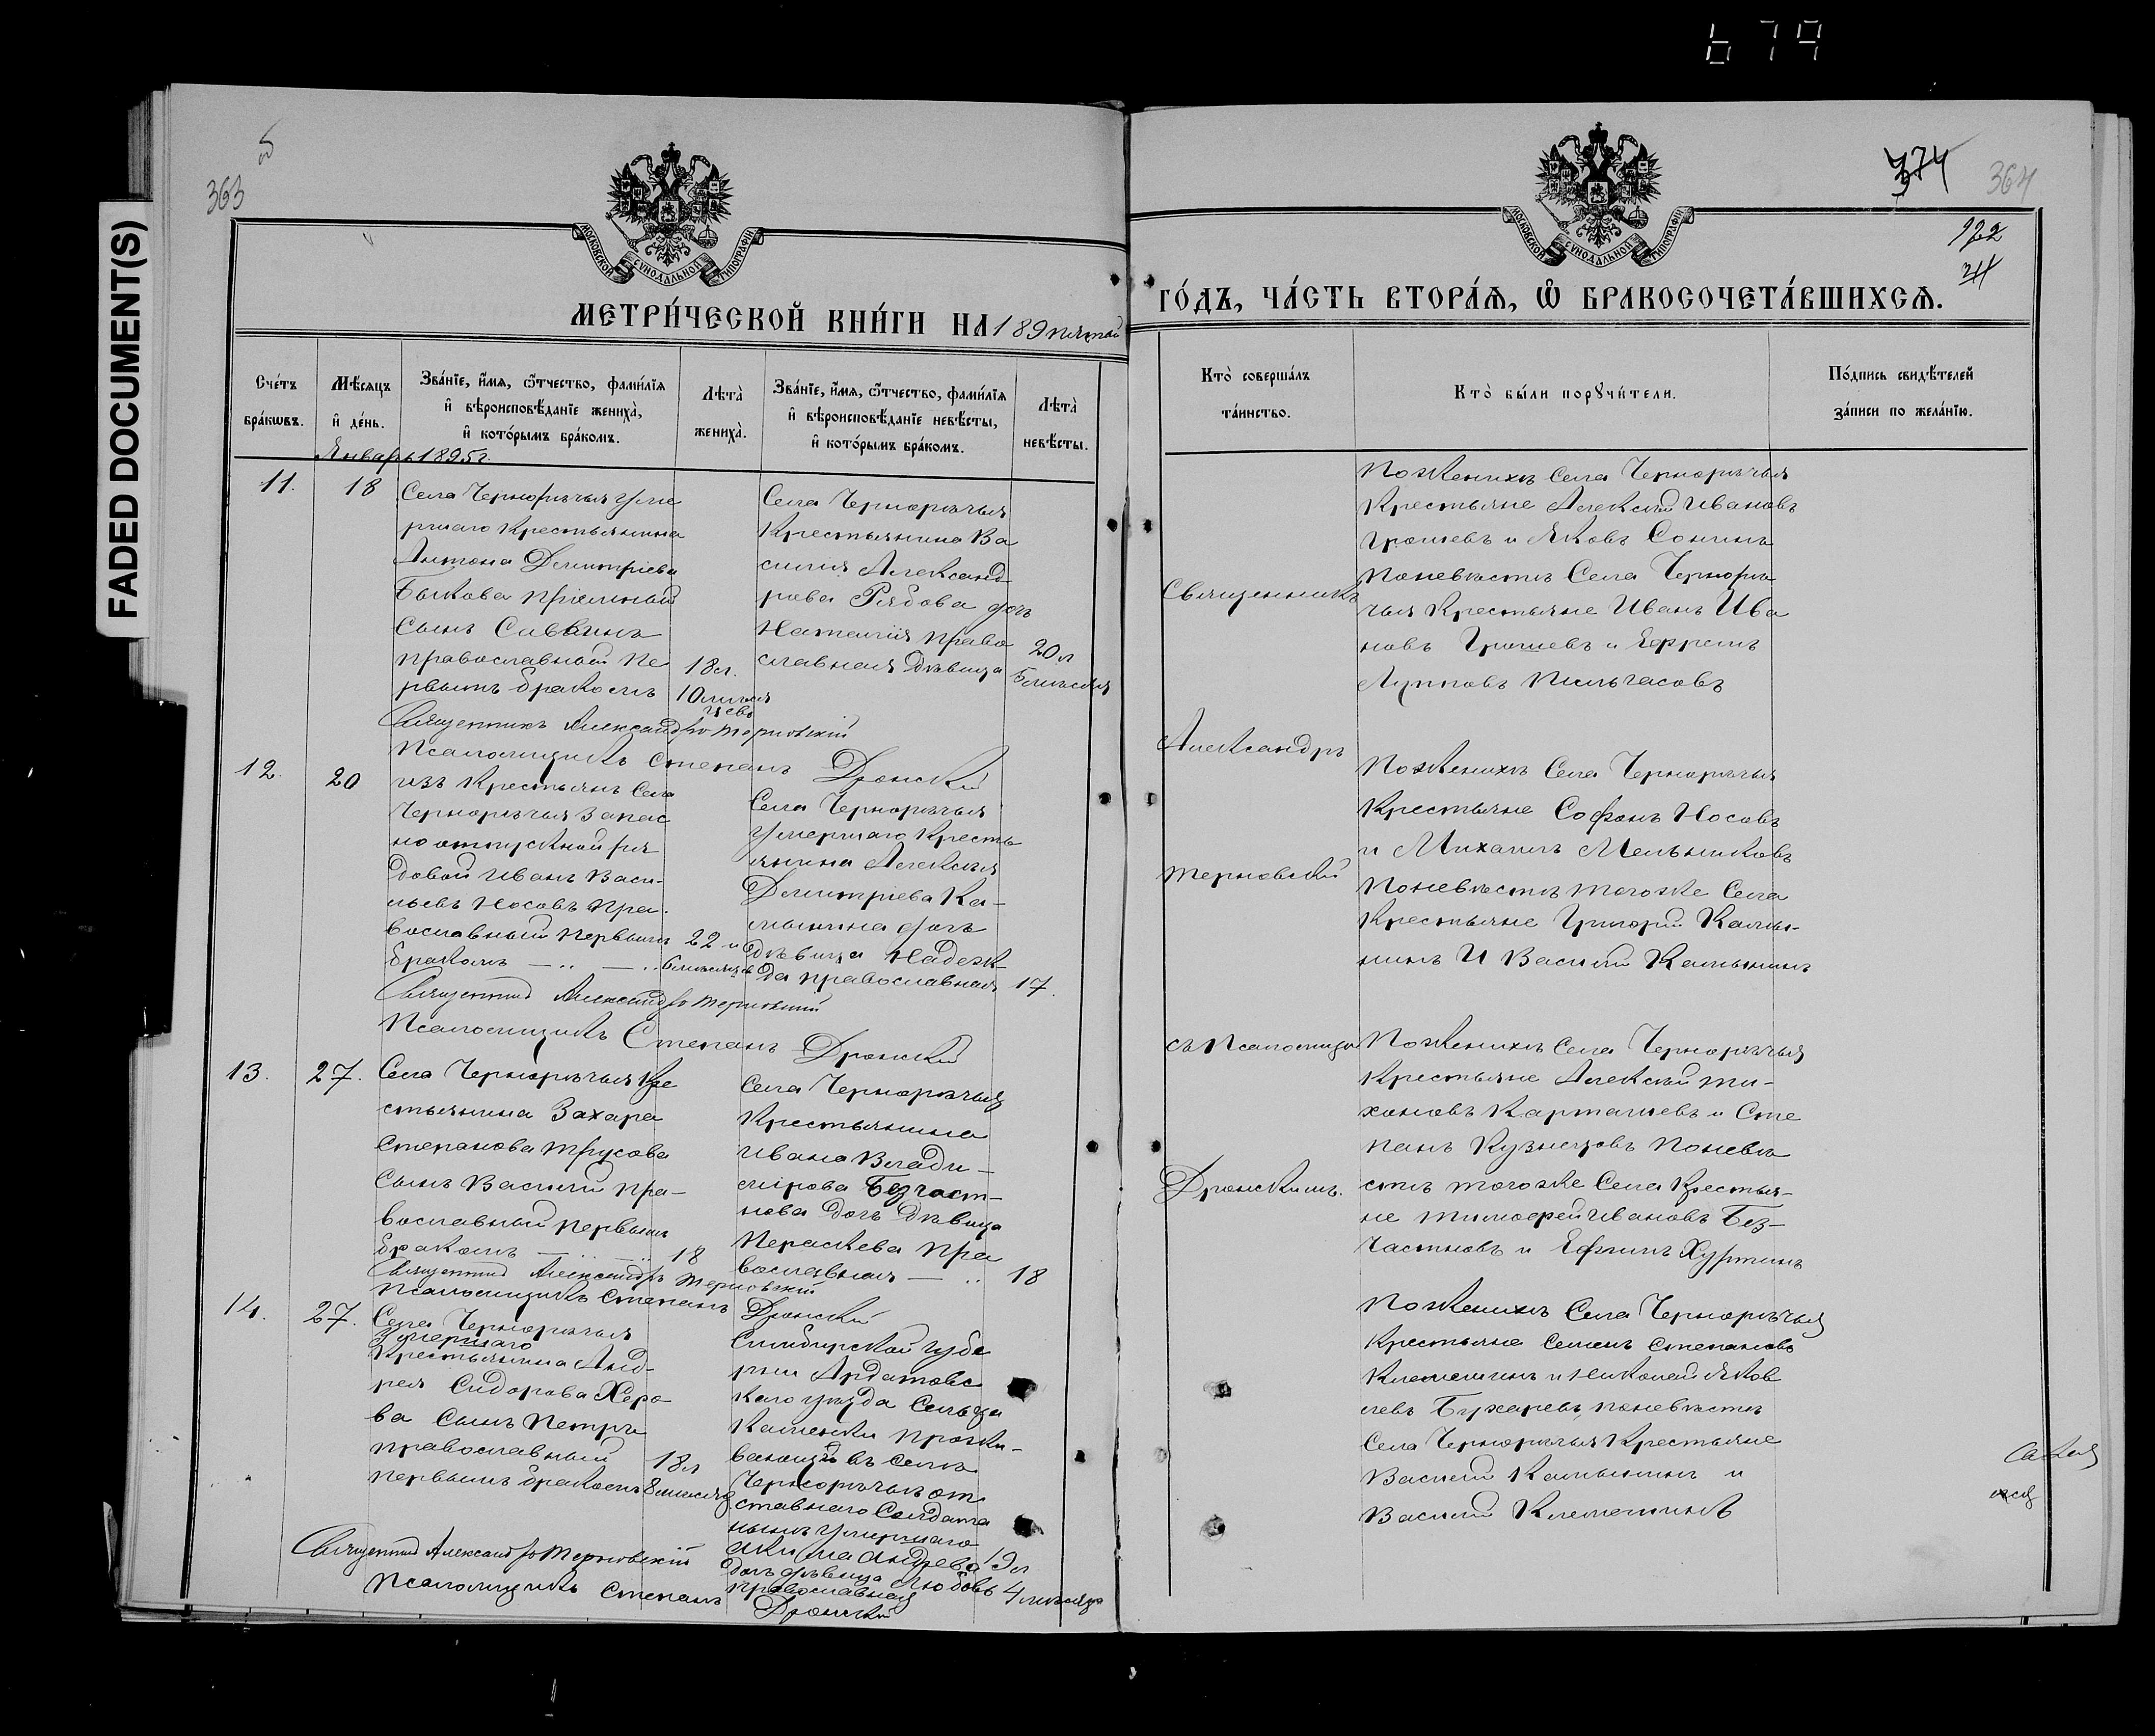 679
FADED DOCUMENT(S)
363
МОСКОВСКОЙ СУНОДАЛЬНОЙ ТИПОГРАФІИ
МЕТРИ́ЧЕСКОЙ КНИ́ГИ НА 189 пятый
Сче́тъ бра́кѡвъ.
Мѣ́сяцъ и҆ де́нь.
Зва́нїе, и҆́мѧ, ѻ҆́тчество, фами́лїѧ и҆ вѣроисповѣ́данїе жениха̀, и҆ кото́рымъ бра́комъ.
Лѣта̀ жениха̀.
Зва́нїе, и҆́мѧ, ѻ҆́тчество, фами́лїѧ и҆ вѣроисповѣ́данїе невѣ́сты, и҆ кото́рымъ бра́комъ.
Лѣта̀ невѣ́сты.
Январь 1895 г.
11.
18
Села Чернорѣчья уме
ршаго Крестьянина
Антона Димитріева
Быкова пріемный
сынъ Саввинъ
православный Пе
рвымъ бракомъ
18 л.
10 мѣся
цевъ
Села Чернорѣчья
Крестьянина Ва
силія Александ
рова Рябова дочь
Наталія право
славная дѣвица
20 л
5 мѣсяц
Священникъ Александръ Терновскій
Псаломщикъ Степанъ Дронскій
12.
20
изъ Крестьянъ Села
Чернорѣчья Запас
но отпускной ря
довой Иванъ Васи-
льевъ Носовъ Пра-
вославный Первымъ
бракомъ
22 и
6 мѣсяцев
Села Чернорѣчья
Умершаго Кресть
янина Алексѣя
Димитріева Ка-
мынина дочь
дѣвица Надеж-
да православная
17.
Священник Александръ Терновскій
Псаломщикъ Степанъ Дронскій
13.
27.
Села Чернорѣчья Кре
стьянина Захара
Степанова Трусова
Сынъ Василій Пра-
вославный первымъ
бракомъ
18
Села Чернорѣчья
Крестьянина
Ивана Влади-
мірова Безчаст-
нова дочь дѣвица
Параскева Пра
вославная
18
Священник Александръ Терновскій
Псаломщикъ Степанъ Дронскій
14.
27.
Села Чернорѣчья
Умершаго
Крестьянина Анд-
рея Сидорова Херо-
ва Сынъ Петръ
православный
первымъ бракомъ
18 л
8 мѣсяц
Симбирской губе
рніи Ардатовс
каго уѣзда Сельца
Каменки прожи-
вающій въ Селѣ
Чернорѣчьѣ от
ставнаго Солдата
нынѣ умершаго
Акима Андреева
дочь дѣвица Любовь
православная
19 л
4 мѣсяца
Священник Александръ Терновскій
Псаломщикъ Степанъ Дронскій
374
364
МОСКОВСКОЙ СУНОДАЛЬНОЙ ТИПОГРАФІИ
122
ГО́ДЪ, ЧА́СТЬ ВТОРА́Ѧ, Ѽ БРАКОСОЧЕТА́ВШИХСѦ.
Кто̀ соверша́лъ та́инство.
Кто̀ бы́ли порꙋчи́тели.
По́дпись свидѣ́телей за́писи по жела́нїю.
Священникъ
Александръ
Терновскій
съ Псаломщи
Дронскимъ.
По Женихѣ Села Чернорѣчья
Крестьяне Алексѣй Ивановъ
Грошевъ и Яковъ Сонинъ
По невѣстѣ Села Чернорѣ
чья Крестьяне Иванъ Ива
новъ Грошевъ и Ефремъ
Лупповъ Пильчасовъ
По Женихѣ Села Чернорѣчья
Крестьяне Софонъ Носовъ
и Михаилъ Мельниковъ
По невѣстѣ того же Села
Крестьяне Григорій Камы-
нинъ И Василій Камынинъ
По Женихѣ Села Чернорѣчья
Крестьяне Алексѣй Ти-
хоновъ Карташевъ и Сте
панъ Кузнецовъ По невѣ
стѣ того же Села Крестья-
не Тимофей Ивановъ Без-
частновъ и Ефимъ Хуртинъ
По Женихѣ Села Чернорѣчья
Крестьяне Семенъ Степановъ
Клемешинъ и Николай Яков
левъ Бухаревъ, по невѣстѣ
Села Чернорѣчья Крестьяне
Василій Камынинъ и
Василій Клемешинъ